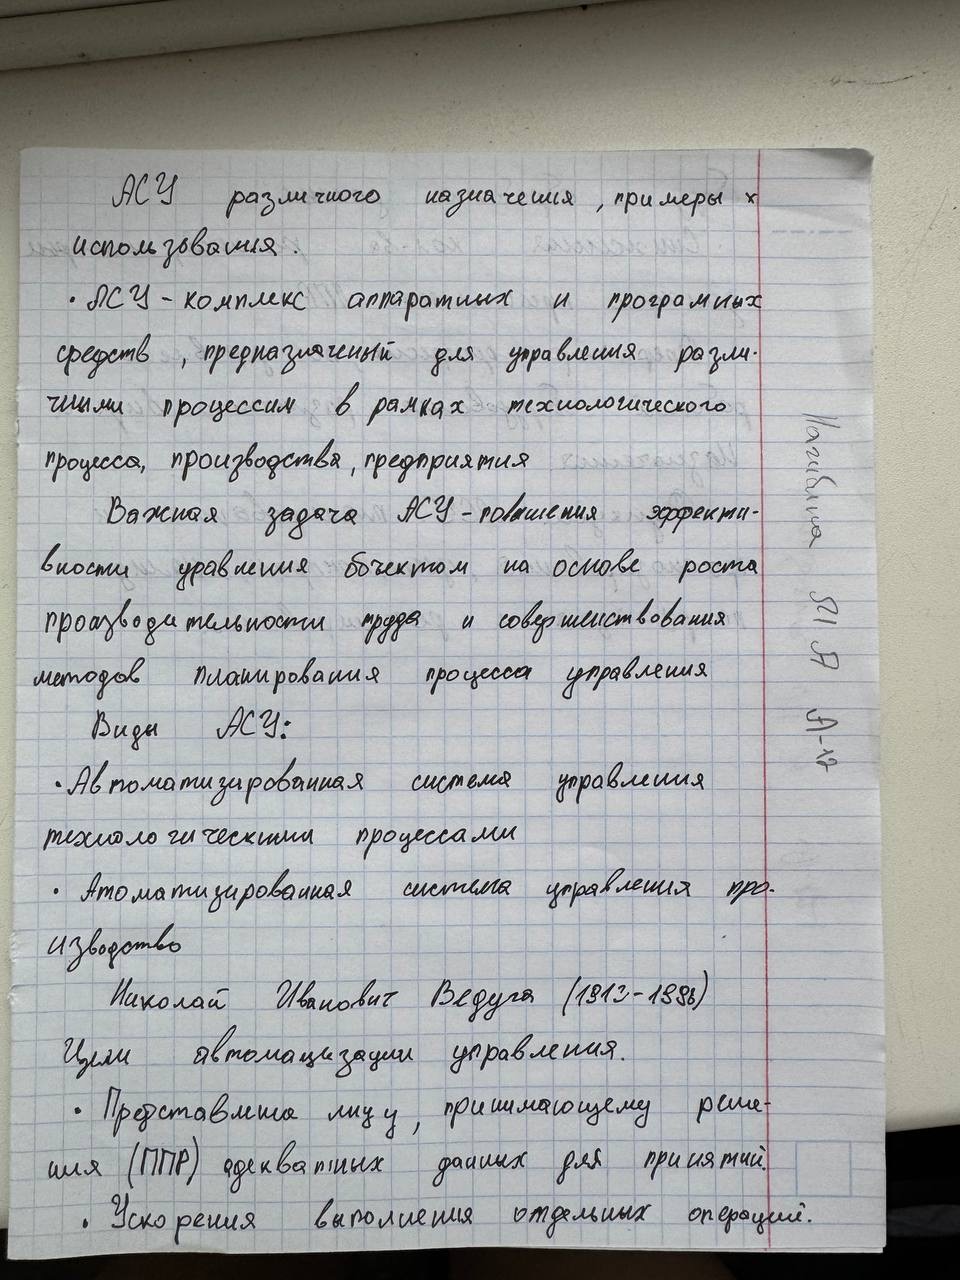 АСУ различного назначения, примеры х
использования.
• АСУ - комплекс аппаратных и програмных
средств, предназначенный для управления разли-
чными процессим в рамках технологического
процесса, производства, предприятия
Важная задача АСУ - повышения эффекти-
вности уравления обчектом на основе роста
производительности труда и совершенствования
методов планирования процесса управления
Виды АСУ:
• Автоматизированная система управления
технологическими процессами
• Атоматизированная система управления про-
изводство
Николай Иванович Ведуга (1913-1996)
Цели автомацизации управления.
• Представлена лицу, принимающему реше-
ния (ППР) адекватных данных для принятий.
• Ускорения выполнения отдельных операций.
Нагибина Я А А-17